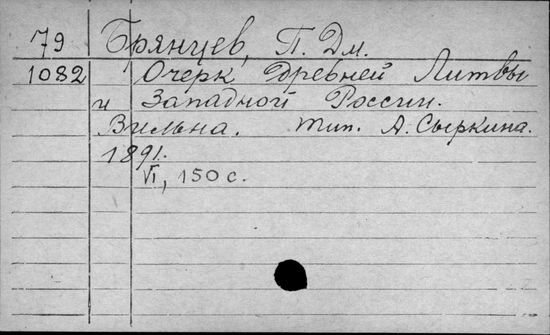 79 Брянцев, П. Дм.
1082 Очерк древней Литвы
и Западной России.
Вильна. тип. А. Сыркина.
1891.
VI, 150 с.